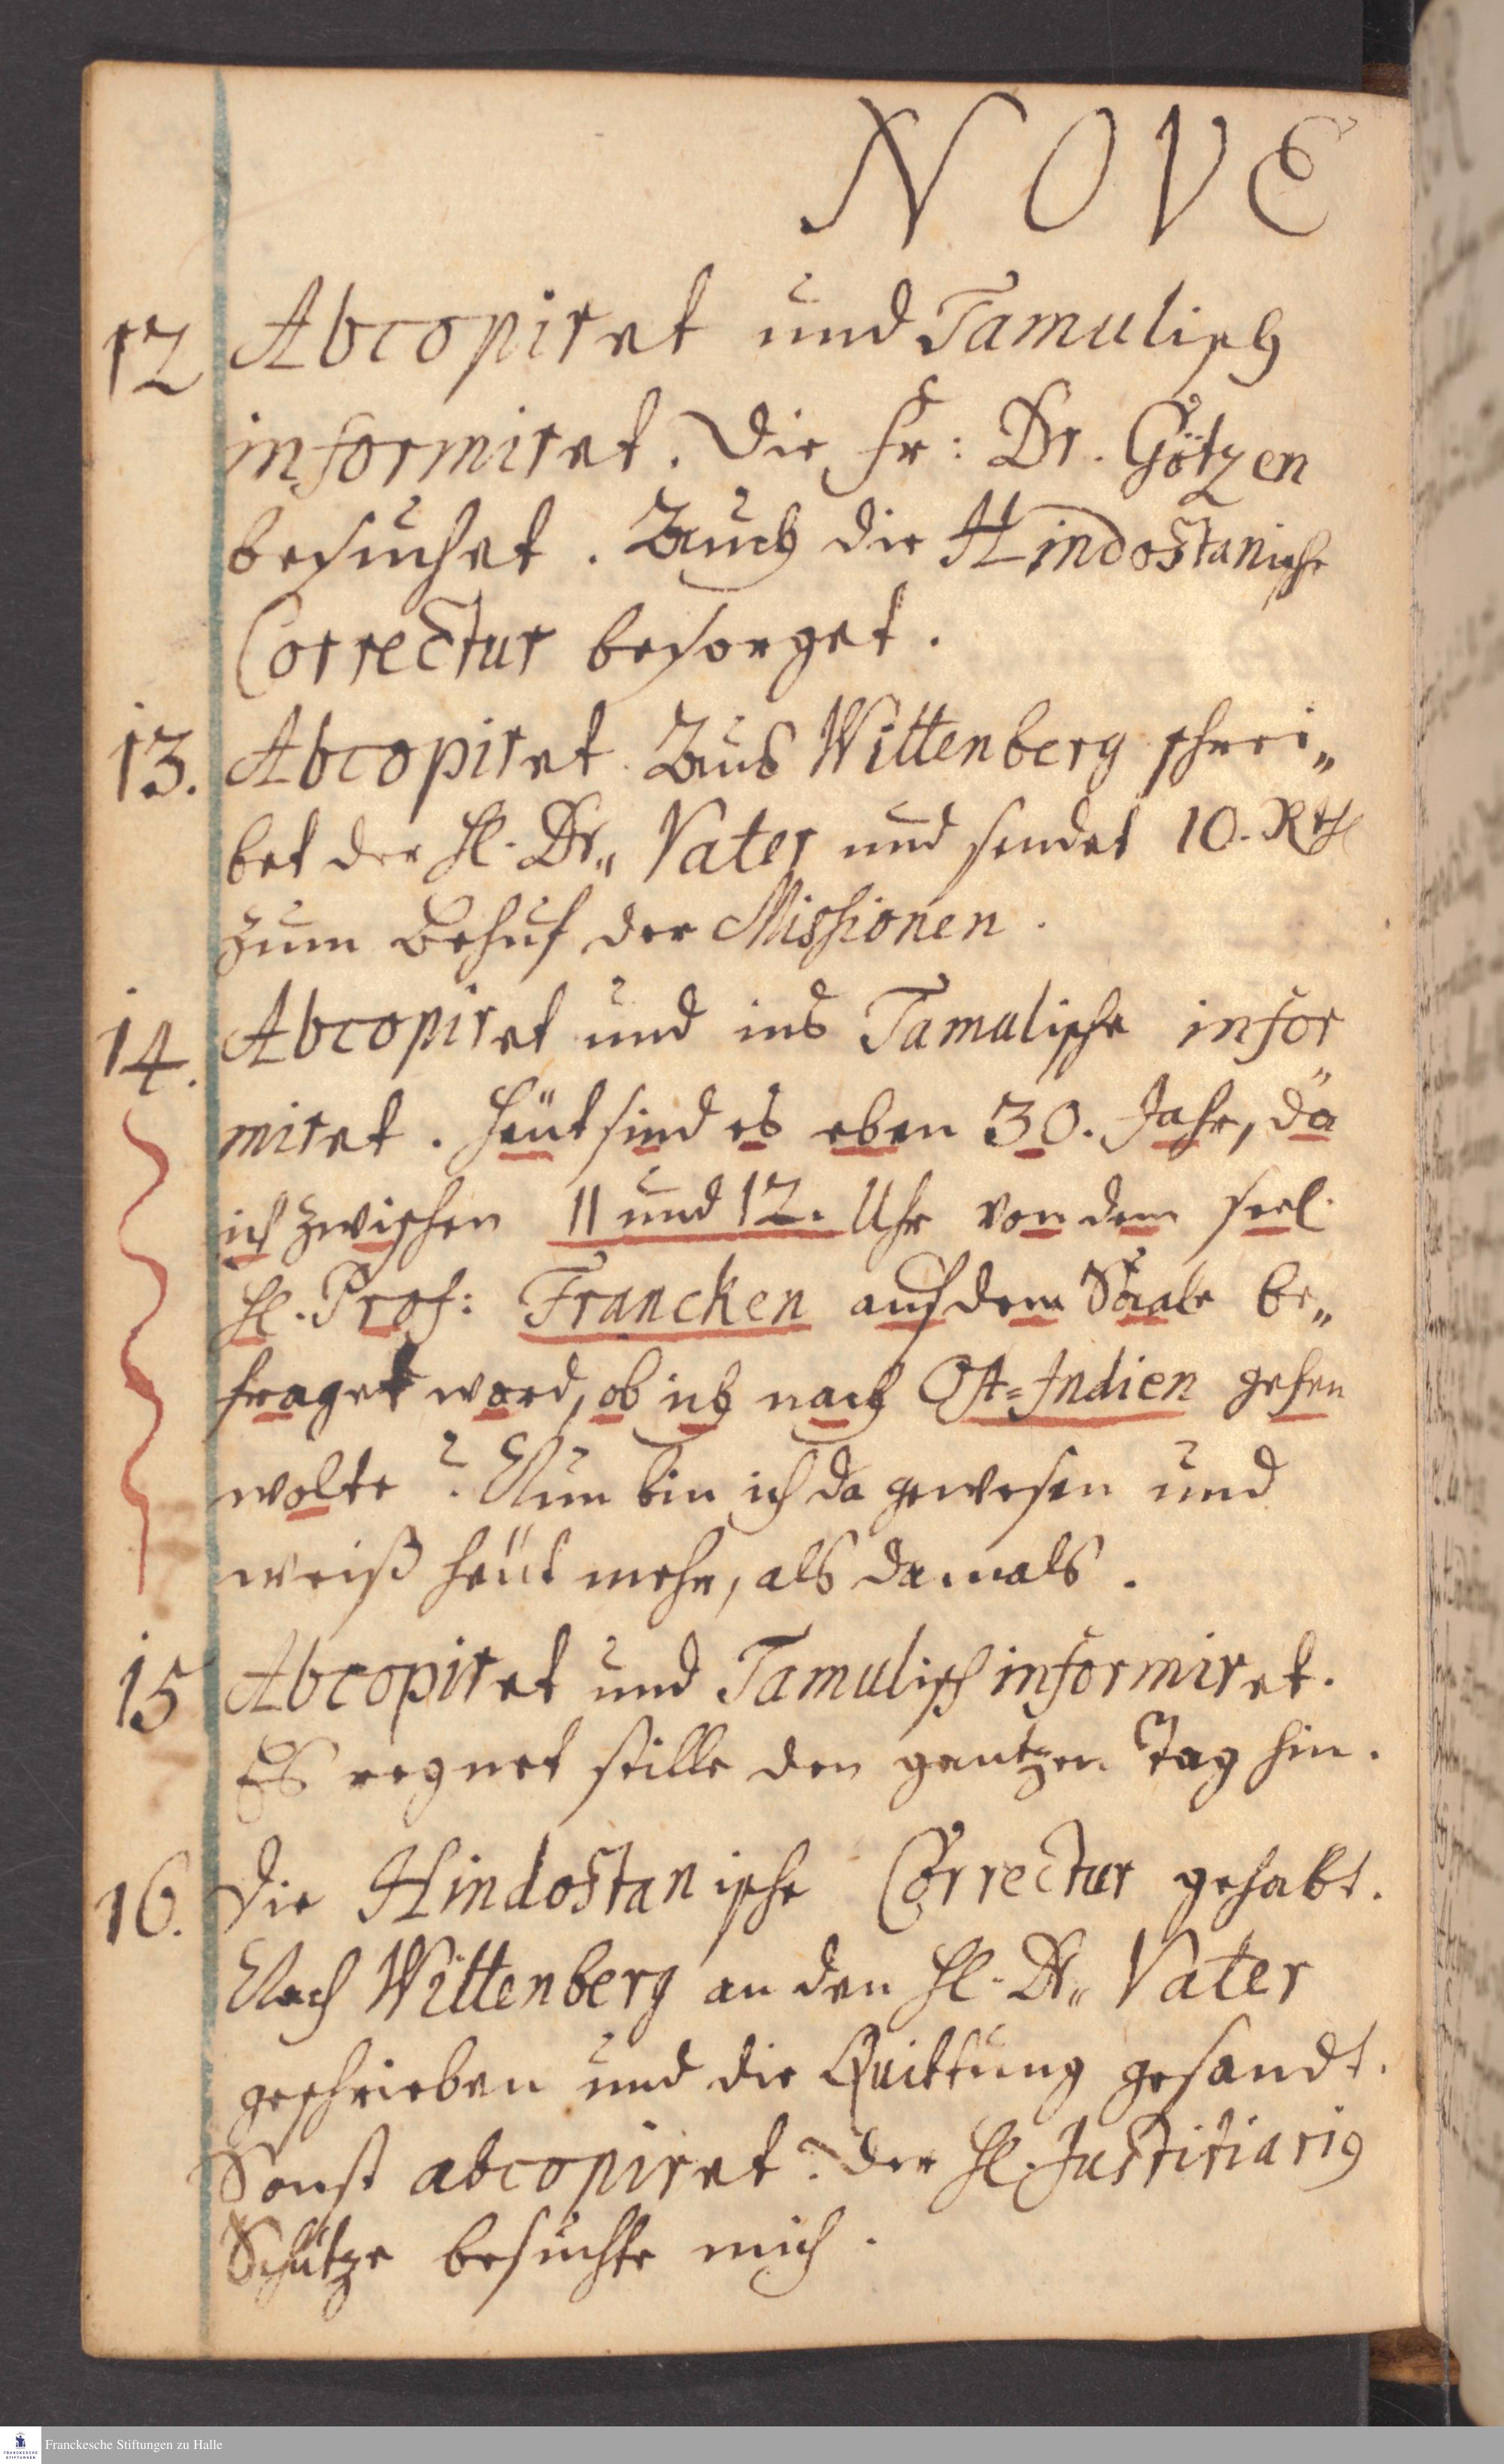 NOVE
12 Abcopiret und Tamulisch
informiret. Die Fr: Dr. Götzen
besuchet. Auch die Hindostanische
Correctur besorget.
13. Abcopiret. Aus Wittenberg schrei„
bet der H. Dr„ Vater und sendet 10. Rth
zum Behuf der Missionen.
14. Abcopiret und ins Tamulische infor„
miret. Heüt sind es eben 30. Jahr, da
ich zwischen 11 und 12. Uhr von dem seel.
H. Prof: Francken auf dem Saale be„
fraget ward, ob ich nach Ost=Indien gehen
wolte? Nun bin ich da gewesen und
weiß heüt mehr, als damals.
15 Abcopiret und Tamulisch informiret.
Es regnet stille den gantzen Tag hin.
16. Die Hindostanische Correctur gehabt.
Nach Wittenberg an den H. Dr„ Vater
geschrieben und die Quittung gesandt.
Sonst abcopiret. Der H. Justitiarius
Schütze besuchte mich.
Franckesche Stiftungen zu Halle